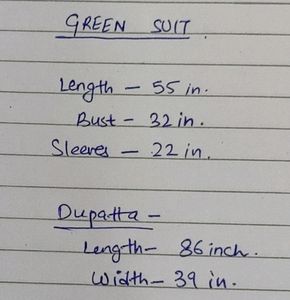 GREEN SUIT.
Length - 55 in.
Bust - 32 in.
Sleeves - 22 in.
Dupatta -
Length - 86 inch.
Width - 39 in.